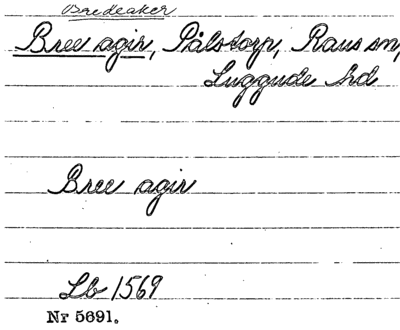 Bredeaker
Bree agir, Pålstorp, Raus sn,
Luggude hd
Bree agir
Lb 1569
Nr 5691.